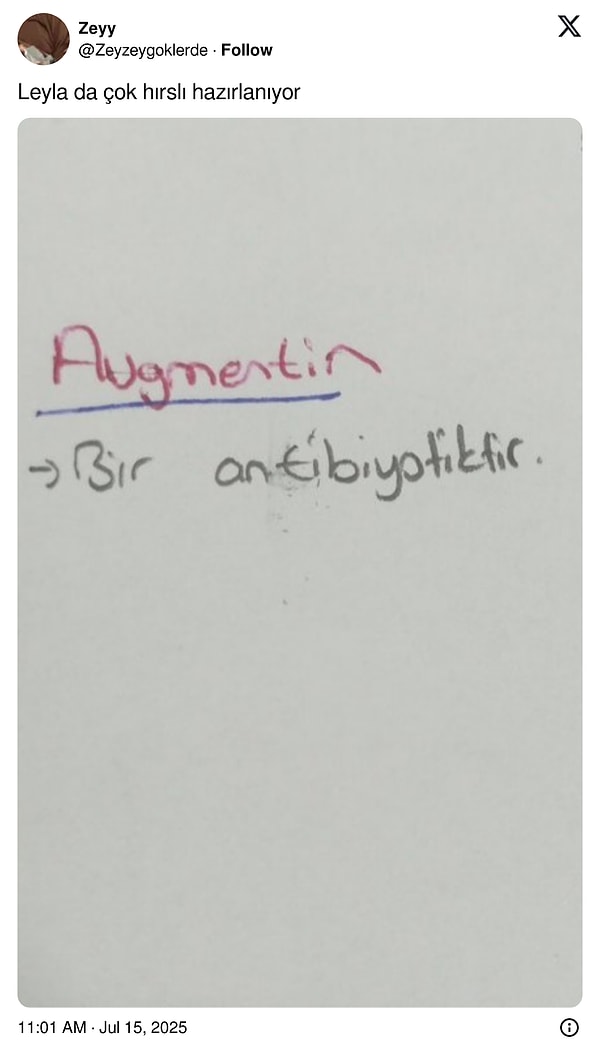 Zeyy
@Zeyzeygoklerde · Follow
Leyla da çok hırslı hazırlanıyor
Augmentin
→ Bir antibiyotiktir.
11:01 AM · Jul 15, 2025